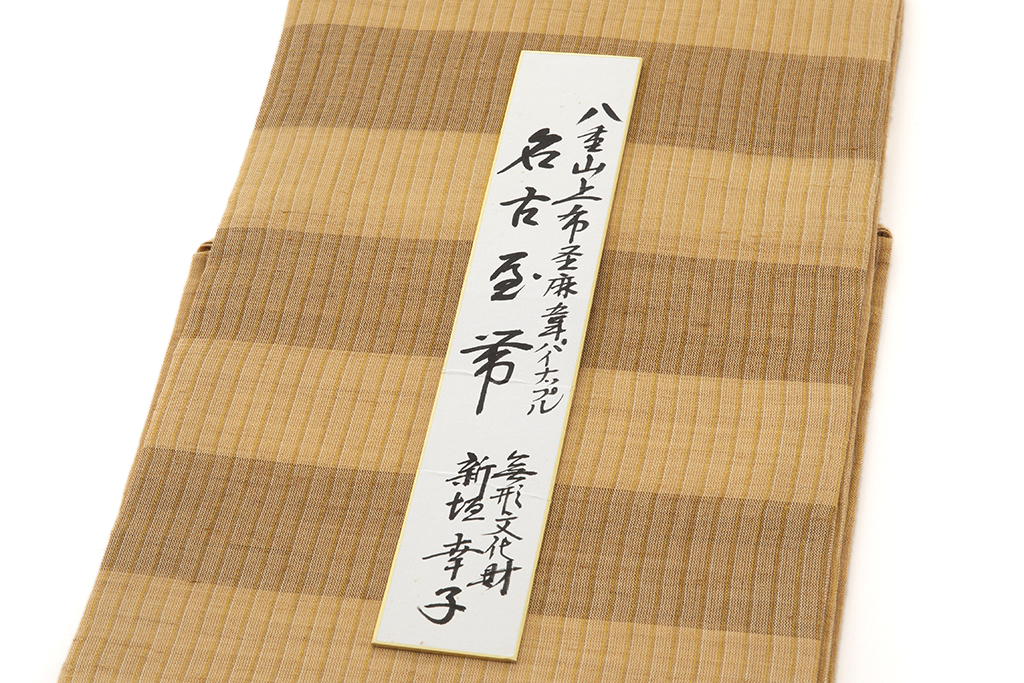 八重山上布圣麻韋パイナップル
名古屋帯
無形文化財
新垣幸子